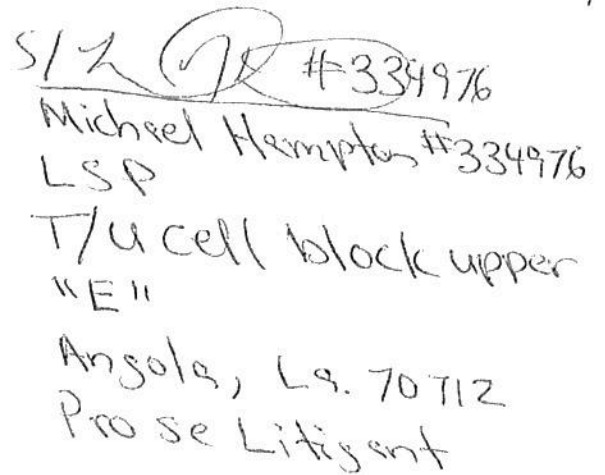 S/ #334976
Michael Hampton #334976
LSP
T/U cell block upper
"E"
Angola, La. 70712
Pro se Litigant